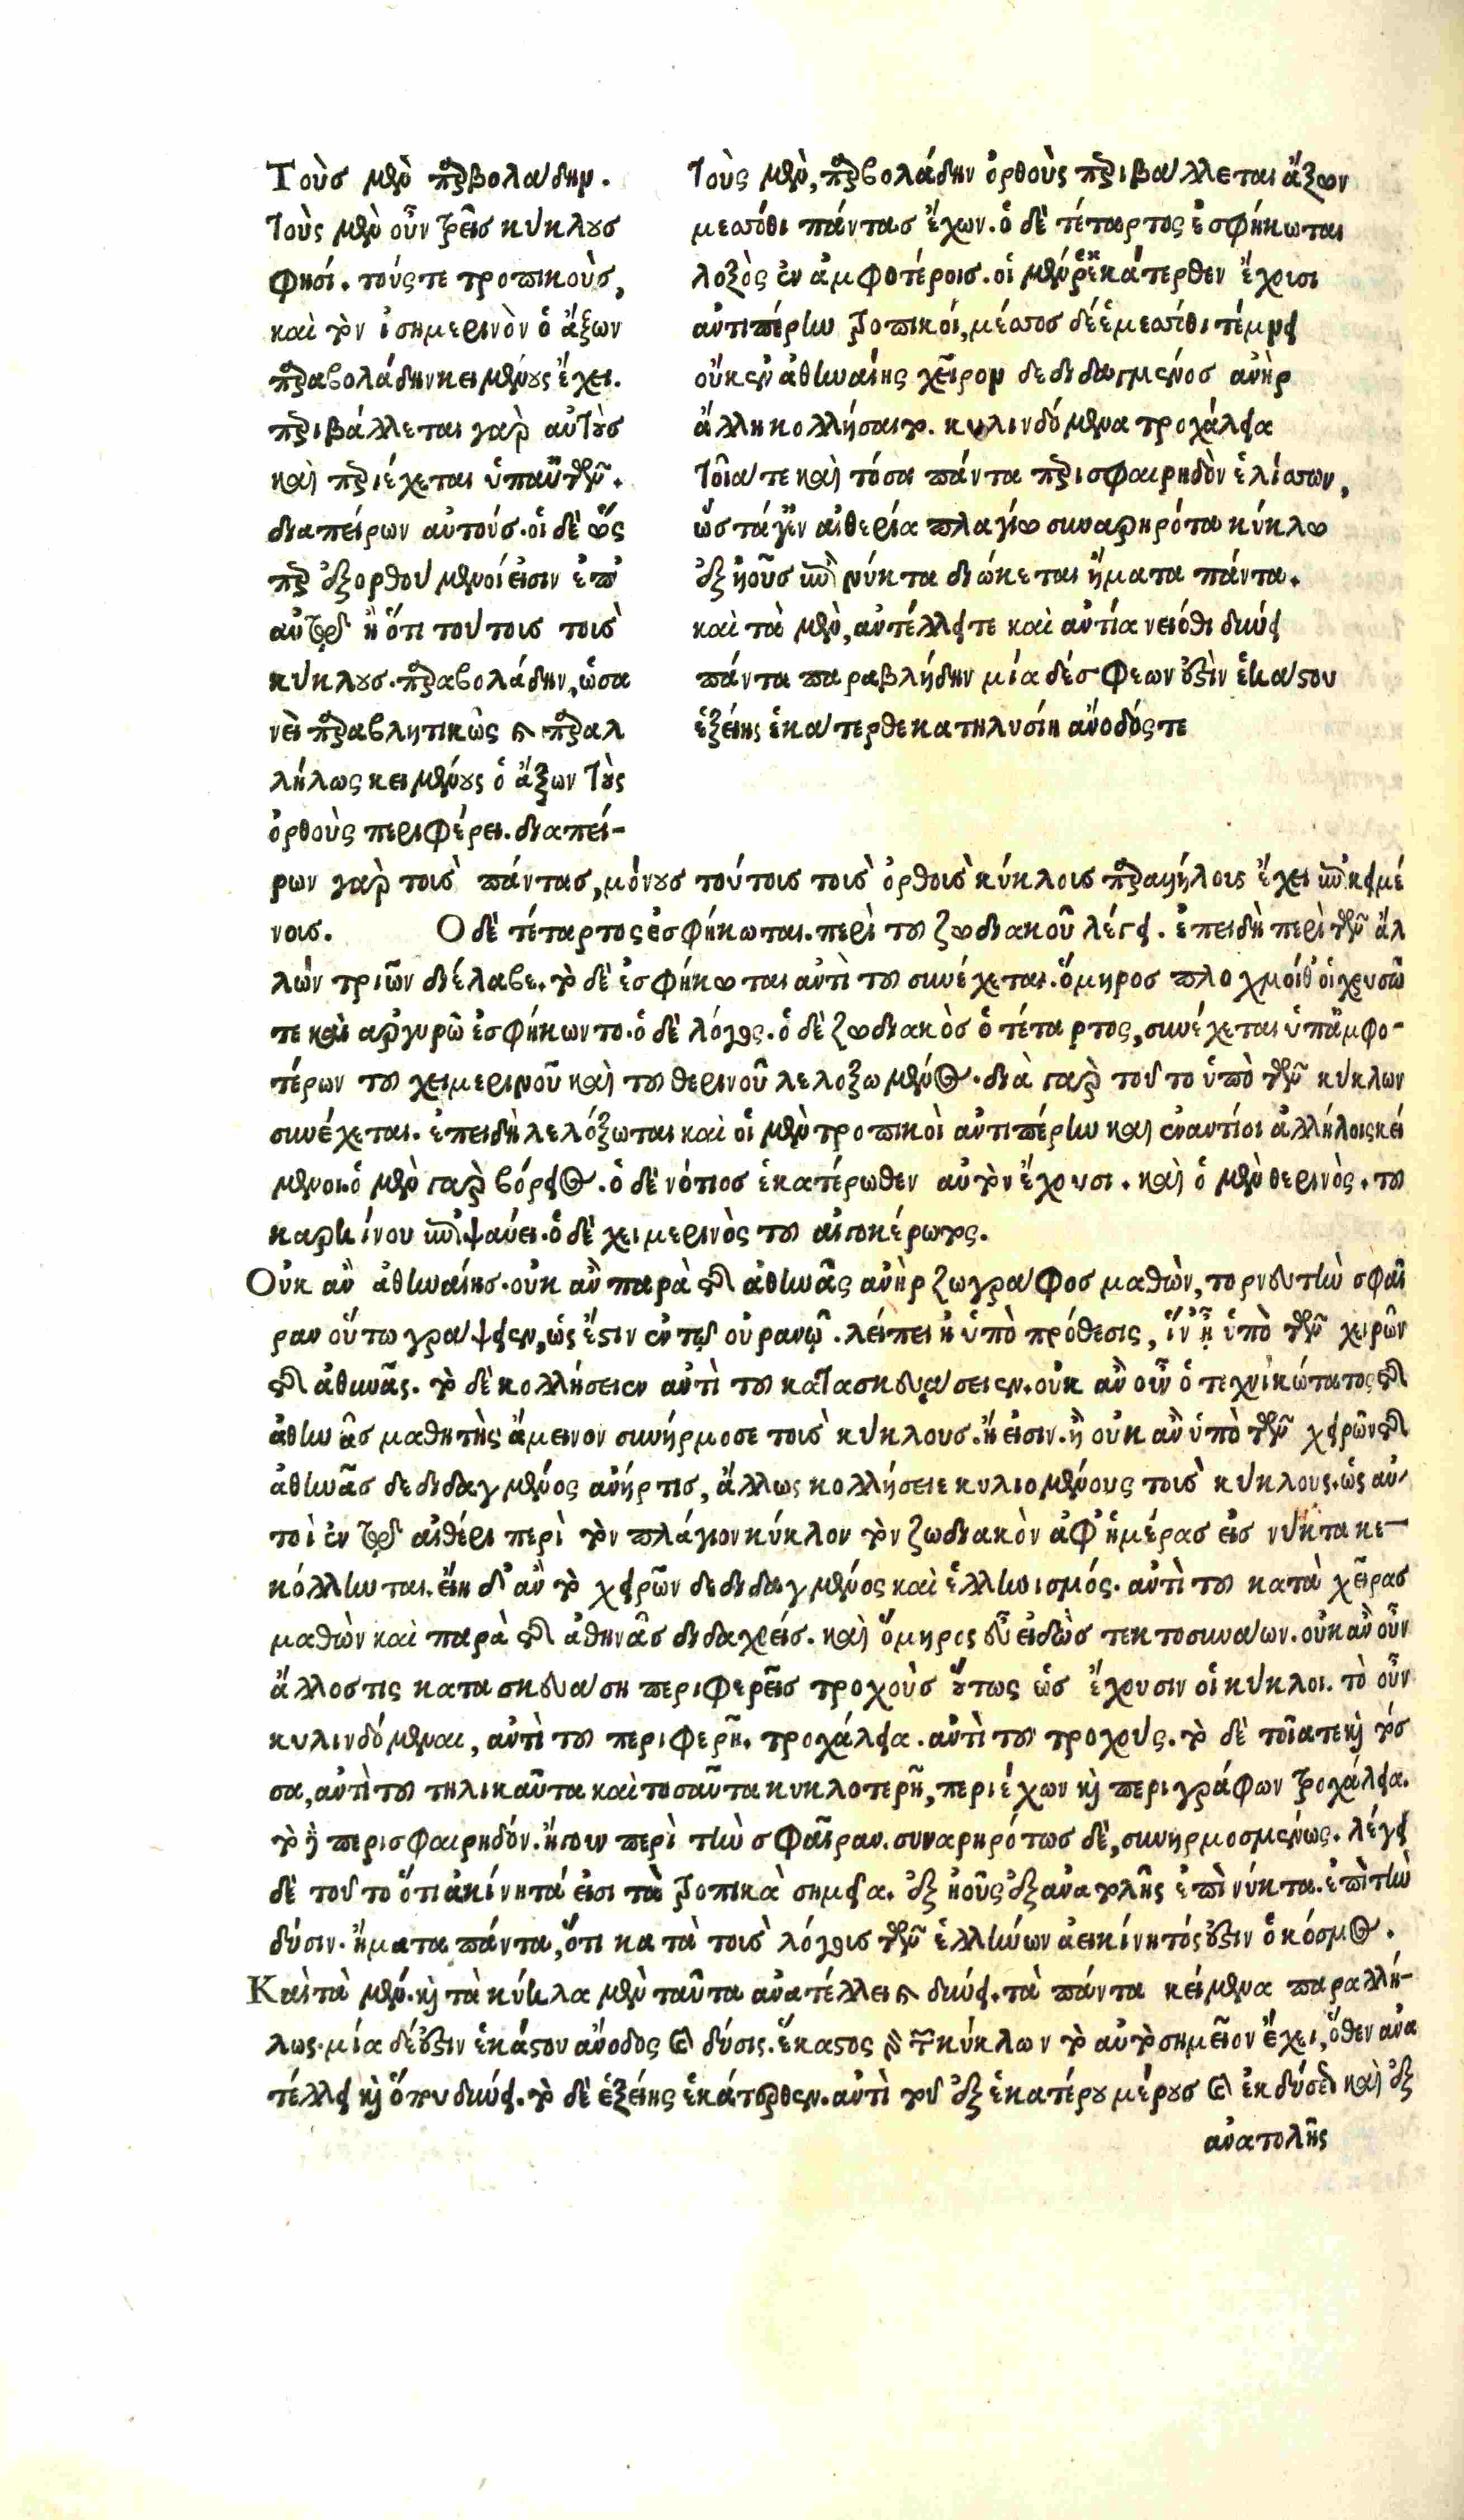 Τοὺσ μὲν παραβολάδην.
τοὺς μὲν οὖν τρεῖσ κύκλουσ
φησί. τούς τε τροπικοὺς,
καὶ τὸν ἰσημερινὸν ὁ ἄξων
παραβολάδην κειμένους ἔχει.
περιβάλλεται γὰρ αὐτοὺσ
καὶ περιέχεται ὑπ' αὐτῶν.
διαπείρων αὐτούσ. οἱ δὲ ὥς
περ ἐξορθούμενοί εἰσιν ἐπ'
αὐτῷ ἢ ὅτι τούτοις τοὶς
κύκλουσ. παραβολάδην, ὡσα
νεὶ παραβλητικῶς καὶ παραλ
λήλως κειμένους ὁ ἄξων τοὺς
ὀρθοὺς περιφέρει. διαπεί-
τοὺς μὲν, παραβολάδην ὀρθοὺς περιβάλλεται ἄξων
μεσσόθι πάντασ ἔχων. ὁ δὲ τέταρτος ἐσφήκωται
λοξὸς ἐν ἀμφοτέροισ. οἱ μέν ῥ' ἑκάτερθεν ἔχουσι
ἀντιπέρην τροπικοί, μέσσος δέ ἑ μεσσόθι τέμνει
οὔ κεν ἀθηναίης χεῖρον δεδιδαγμένοσ ἀνὴρ
ἄλλη κολλήσαιτο. κυλινδόμενα τροχάλεια
τοῖά τε καὶ τόσα πάντα περισφαιρηδὸν ἑλίσσων,
ὥς τά γ' ἐν αἰθερία πλαγίω συναρηρότα κύκλω
ἐξ ἠοῦσ ἐπὶ νύκτα διώκεται ἤματα πάντα.
καὶ τὰ μὲν, ἀντέλλει τε καὶ αὐτίκα νειόθι δύνει
πάντα παραβλήδην μία δέ σφεων ἐστὶν ἑκάστου
ἑξείης ἑκάτερθε κατηλυσίη ἄνοδός τε
ρων γὰρ τοὶς πάντασ, μόνους τούτοις τοὶς ὀρθοὶς κύκλοις παραλλήλοις ἔχει ἐπικειμέ
νοις. Ο δὲ τέταρτος ἐσφήκωται. περὶ τοῦ ζωδιακοῦ λέγει. ἐπειδὴ περὶ τῶν ἄλ
λων τριῶν διέλαβε. τὸ δὲ ἐσφήκωται ἀντὶ τοῦ συνέχεται. ὅμηροσ πλοχμοί θ' οἱ χρυσῶ
τε καὶ ἀργυρῶ ἐσφήκωντο. ὁ δὲ λόγος. ὁ δὲ ζωδιακὸσ ὁ τέταρτος, συνέχεται ὑπ' ἀμφο-
τέρων τοῦ χειμερινοῦ καὶ τοῦ θερινοῦ λελοξωμένος. διὰ γὰρ τοῦτο ὑπὸ τῶν κύκλων
συνέχεται. ἐπειδὴ λελόξωται καὶ οἱ μὲν τροπικοὶ ἀντιπέρην καὶ ἐναντίοι ἀλλήλοις κεί
μενοι. ὁ μὲν γὰρ βόρειος. ὁ δὲ νότιοσ ἑκατέρωθεν αὐτὸν ἔχουσι. καὶ ὁ μὲν θερινὸς. τοῦ
καρκίνου ἐπιψαύει. ὁ δὲ χειμερινὸς τοῦ αἰγοκέρωτος.
Οὐκ ἂν ἀθηναίησ. οὐκ ἂν παρὰ τῆς ἀθηνᾶς ἀνὴρ ζωγράφοσ μαθὼν, τορνευτὴν σφαῖ
ραν οὕτω γράψειεν, ὡς ἔστιν ἐν τῷ οὐρανῷ. λείπει ἡ ὑπὸ πρόθεσις, ἵν' ᾖ ὑπὸ τῶν χειρῶν
τῆς ἀθηνᾶς. τὸ δὲ κολλήσειεν ἀντὶ τοῦ κατασκευάσειεν. οὐκ ἂν οὖν ὁ τεχνικώτατος τῆς
ἀθηνᾶσ μαθητὴς ἄμεινον συνήρμοσε τοὶς κύκλους. ἤ εἰσιν. ἢ οὐκ ἂν ὑπὸ τῶν χειρῶν τῆς
ἀθηνᾶσ δεδιδαγμένος ἀνήρ τισ, ἄλλως κολλήσειε κυλιομένους τοὶς κύκλους. ὡς αὐ-
τοὶ ἐν τῷ αἰθέρι περὶ τὸν πλάγιον κύκλον τὸν ζωδιακὸν ἀφ' ἡμέρασ εἰσ νύκτα κε-
κόλληνται. εἴη δ' ἂν τὸ χειρῶν δεδιδαγμένος καὶ ἑλληνισμός. ἀντὶ τοῦ κατὰ χεῖρασ
μαθὼν καὶ παρὰ τῆς ἀθηνᾶσ διδαχθείσ. καὶ ὅμηρος εὖ εἰδὼσ τεκτοσυνάων. οὐκ ἂν οὖν
ἄλλοστις κατασκευάση περιφερεῖσ τροχοὺσ οὕτως ὡσ ἔχουσιν οἱ κύκλοι. τὸ οὖν
κυλινδόμεναι, ἀντὶ τοῦ περιφερῆ. τροχάλεια. ἀντὶ τοῦ τροχούς. τὸ δὲ τοῖά τε καὶ τόσ
σα, ἀντὶ τοῦ τηλικαῦτα καὶ τοσαῦτα κυκλοτερῆ, περιέχων καὶ περιγράφων τροχάλεια.
τὸ δὲ περισφαιρηδόν. ἤγουν περὶ τὴν σφαῖραν. συναρηρότωσ δὲ, συνηρμοσμένως. λέγει
δὲ τοῦτο ὅτι ἀκίνητά εἰσι τὰ τροπικὰ σημεῖα. ἐξ ἠοῦς ἐξ ἀνατολῆς ἐπὶ νύκτα. ἐπὶ τὴν
δύσιν. ἤματα πάντα, ὅτι κατὰ τοὶς λόγοις τῶν ἑλλήνων ἀεικίνητός ἐστιν ὁ κόσμος.
Καὶ τὰ μέν. καὶ τὰ κύκλα μὲν ταῦτα ἀνατέλλει καὶ δύνει. τὰ πάντα κείμενα παραλλή-
λως. μία δέ ἐστιν ἑκάστου ἄνοδος καὶ δύσις. ἕκαστος δὲ τῶν κύκλων τὸ αὐτὸ σημεῖον ἔχει, ὅθεν ἀνα
τέλλει καὶ ὅπου δύνει. τὸ δὲ ἑξείης ἑκάτερθεν. ἀντὶ τοῦ ἐξ ἑκατέρου μέρουσ καὶ ἐκ δύσεως καὶ ἐξ
ἀνατολῆς